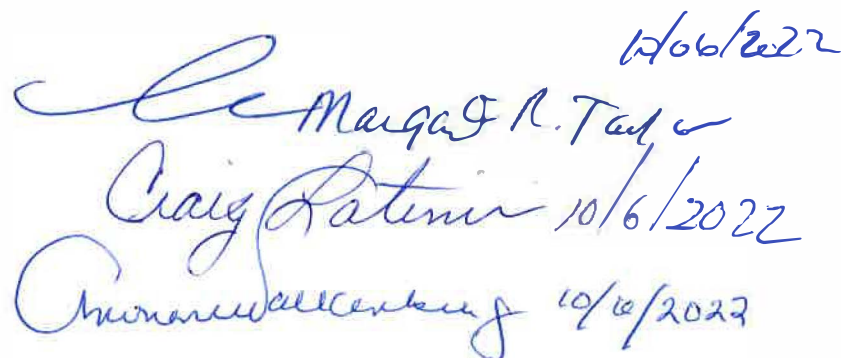 10/06/2022
Margaret R. Taylor
Craig Latimer 10/6/2022
10/6/2022